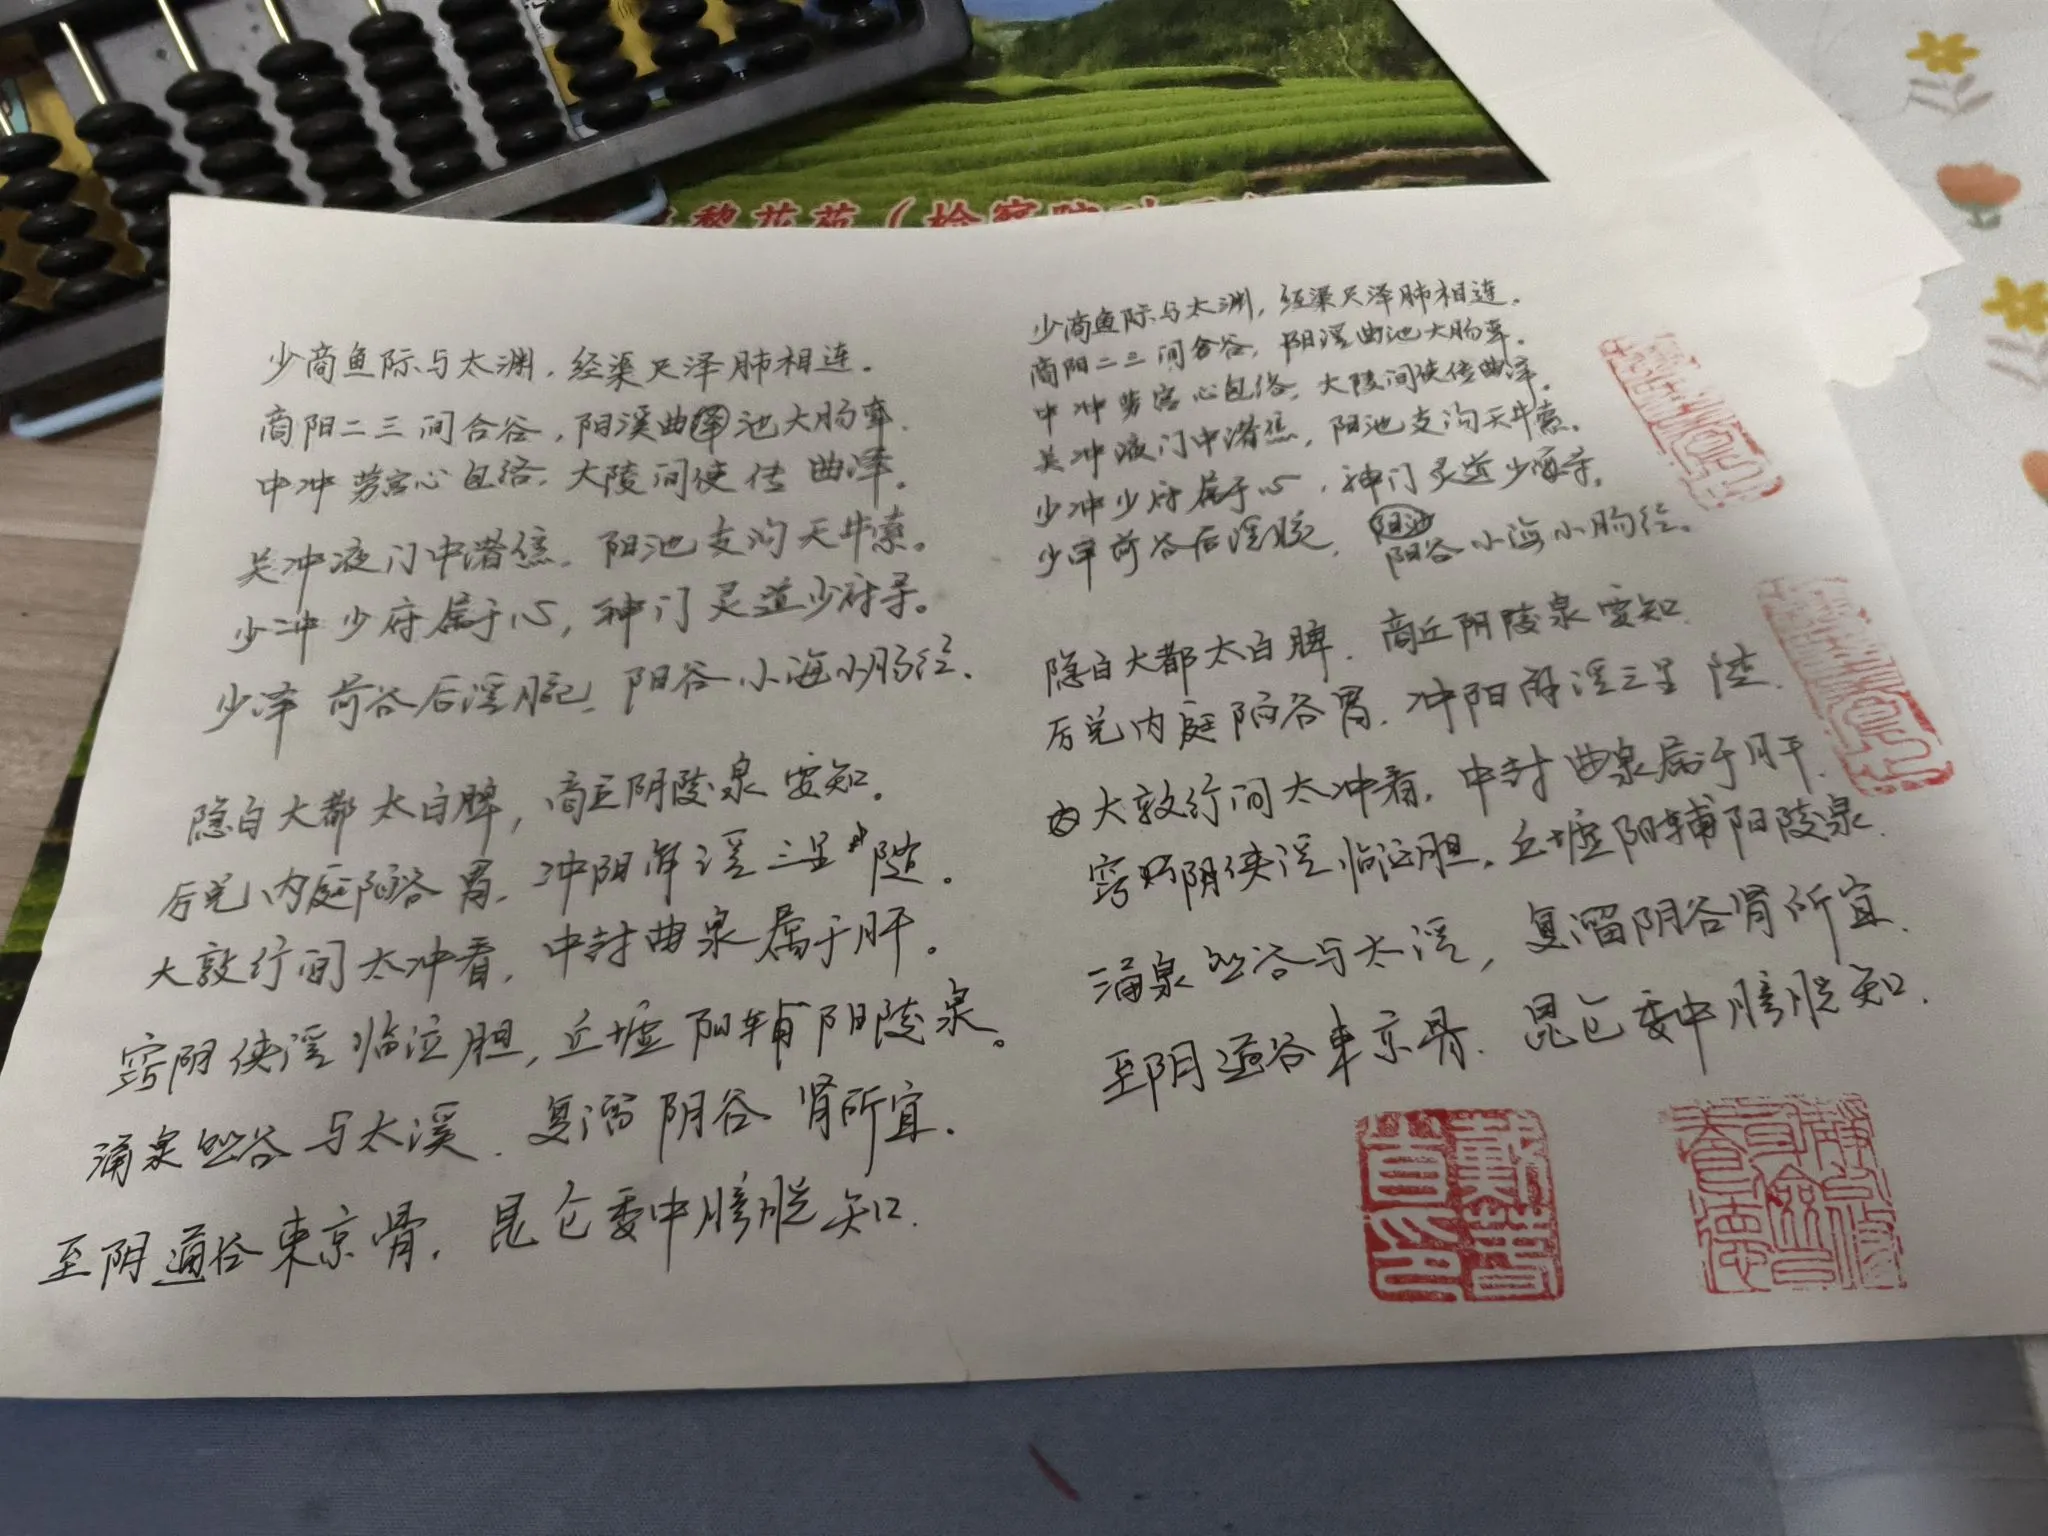 黎花苑（检察院
少商鱼际与太渊，经渠尺泽肺相连。
商阳二三间合谷，阳溪曲泽池大肠牵.
中冲劳宫心包络，大陵间使传曲泽。
关冲液门中渚焦，阳池支沟天井索。
少冲少府属于心，神门灵道少府寻。
少泽前谷后溪腕，阳谷小海小肠经.
隐白大都太白脾，商丘阴陵泉要知。
厉兑内庭陷谷胃，冲阳解溪三里随。
大敦行间太冲看，中封曲泉属于肝。
窍阴侠溪临泣胆，丘墟阳辅阳陵泉。
涌泉然谷与太溪，复溜阴谷肾所宜.
至阴通谷束京骨，昆仑委中膀胱知.
少商鱼际与太渊，经渠尺泽肺相连.
商阳二三间合谷，阳溪曲池大肠牵.
中冲劳宫心包络，大陵间使传曲泽.
关冲液门中渚焦，阳池支沟天井索.
少冲少府属于心，神门灵道少海寻.
少泽前谷后溪腕，阳池
阳谷小海小肠经.
隐白大都太白脾，商丘阴陵泉要知.
厉兑内庭陷谷胃，冲阳解溪三里陸.
大敦行间太冲看，中封曲泉属于肝.
窍阴侠溪临泣胆，丘墟阳辅阳陵泉.
涌泉然谷与太溪，复溜阴谷肾所宜.
至阴通谷束京骨，昆仑委中膀胱知.